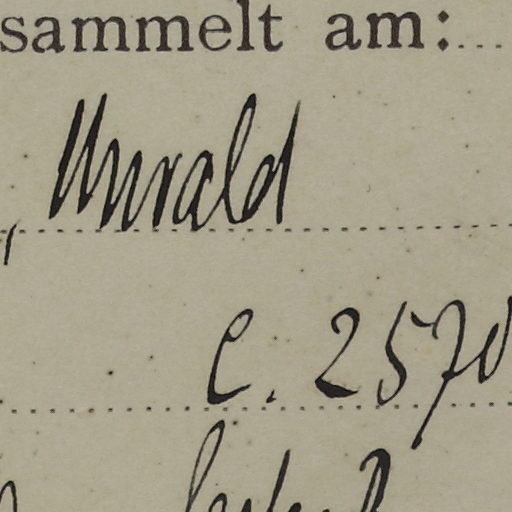 sammelt am:
, Urwald
c. 2570